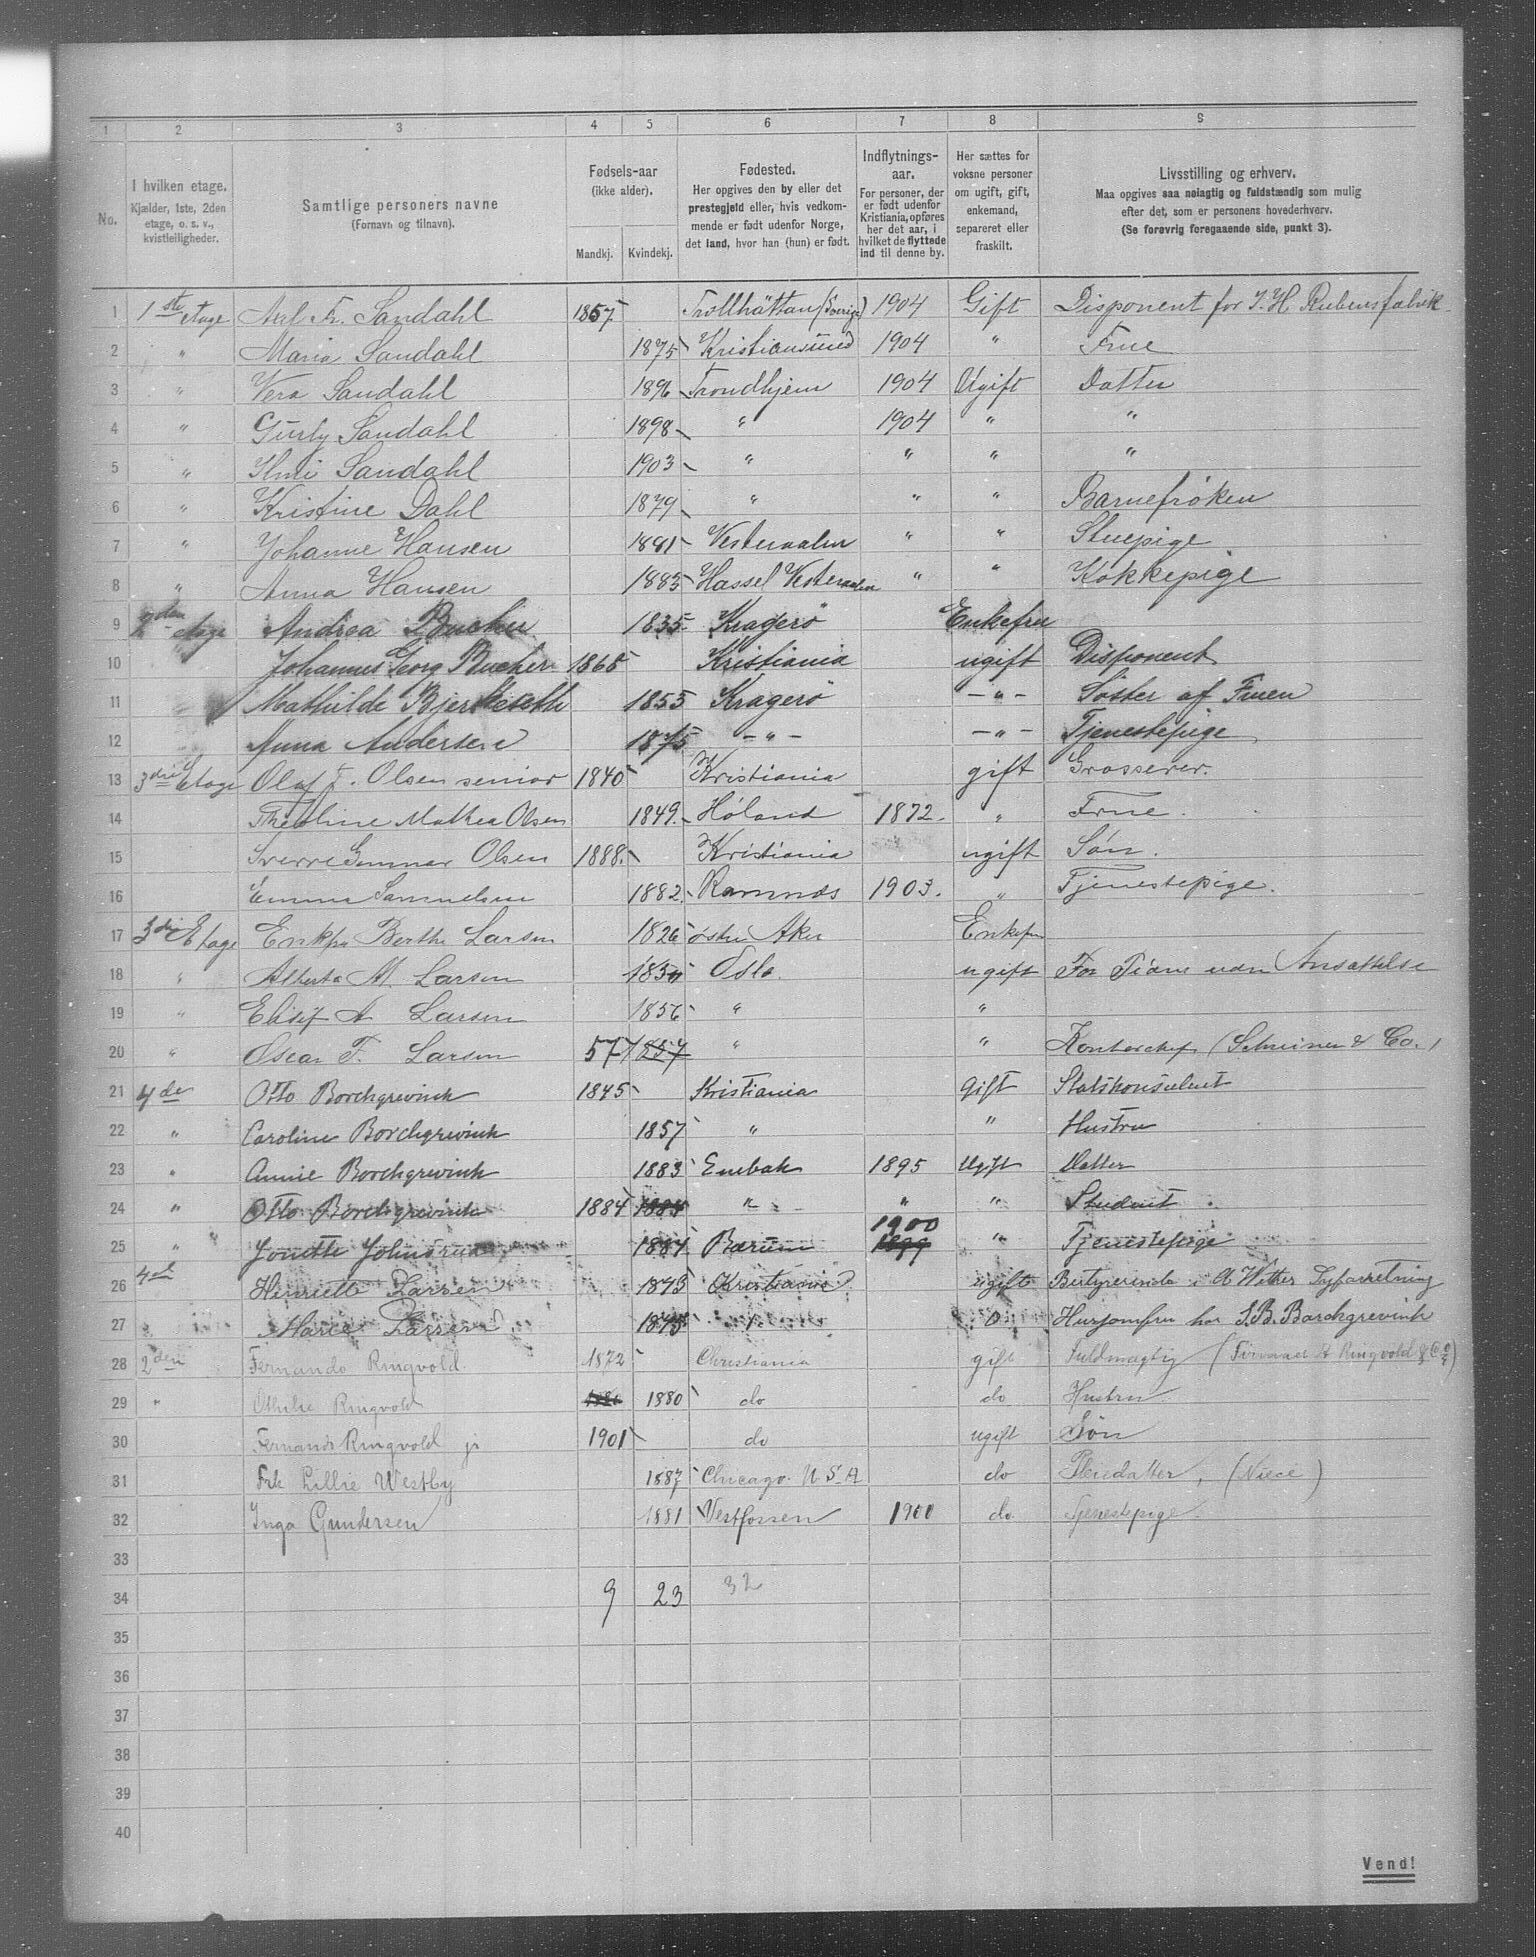 1 2 3 4 5 6 7 8 9
No.
I hvilken etage. Kjælder, 1ste, 2den etage, o. s. v., kvistleiligheder.
Samtlige personers navne (Fornavn og tilnavn).
Fødsels-aar (ikke alder).
Mandkj. Kvindekj.
Fødested. Her opgives den by eller det prestegjeld eller, hvis vedkommende er født udenfor Norge, det land, hvor han (hun) er født.
Indflytnings-aar. For personer, der er født udenfor Kristiania, opføres her det aar, i hvilket de flyttede ind til denne by.
Her sættes for voksne personer om ugift, gift, enkemand, separeret eller fraskilt.
Livsstilling og erhverv. Maa opgives saa nøiagtig og fuldstændig som mulig efter det, som er personens hovederhverv. (Se forøvrig foregaaende side, punkt 3).
1 1ste etage Fr. Sandahl 1857 Trollhättan (Sverige) 1904 Gift Disponent for I. H. Rubens fabrik
2 " Maria Sandahl 1875 Kristiansund 1904 " Frue
3 " Vera Sandahl 1896 Trondhjem 1904 Ugift Datter
4 " Gurly Sandahl 1898 " 1904 " "
5 " Sandahl 1903 " " " "
6 " Kristine Dahl 1879 " " " Barnefrøken
7 " Johanne Hansen 1881 Vesteraalen " " Stuepige
8 " Anna Hansen 1883 Hassel Vesteraalen " " Kokkepige
9 2den etage Andrea Bucher 1835 Kragerö Enkefru
10 " Johannes Georg Bucher 1865 Kristiania ugift Disponent
11 Mathilde 1855 Kragerö - " - Søster af Fruen
12 Anna Andersen 1875 - " - - " - Tjenestepige
13 3die Etage Olaf T. Olsen senior 1840 Kristiania gift Grosserer.
14 Theoline Mathea Olsen 1849. Høland 1872. " Frue.
15 Sverre Gunnar Olsen 1888. Kristiania ugift Søn.
16 Emma Samuelsen 1882. Ramnæs 1903. " Tjenestepige.
17 3die Etage Enkfr Berthe Larsen 1826 østre Aker Enkefru
18 " Alberta M. Larsen Oslo. ugift For Tiden uden Ansættelse
19 " Elisif A Larsen 1856 " "
20 " Oscar F. Larsen 57 1857 " " Kontorchef (Schreiner & Co.)
21 4de Otto Borchgrevink 1845 Kristiania Gift Statskonsulent
22 " Caroline Borchgrevink 1857 " " Hustru
23 " Annie Borchgrevink 1883 Enebak 1895 Ugift Datter
24 " Otto Borchgrevink 1884 1884 - " - " " Student.
25 " Jonette Johnsrud 1884 Bærum 1900 1899 " Tjenestepige
26 4de Henriette Larsen 1843 Kristiania ugift Bestyrerinde i Syforretning
27 Marie Larsen 1845 " Husjomfru hos S. B. Borchgrevink
28 2den Fernando Ringvold. 1872 Christiania gift Fuldmægtig (Firmaet A Ringvold & Co)
29 " Othilie Ringvold 1880 do do Hustru
30 Fernando Ringvold jr 1901 do ugift Søn
31 Frk Lillie Westby 1887 Chicago. U.S.A do Pleiedatter, (Niece)
32 Inga Gundersen 1881 Vestfossen 1900 do Tjenestepige.
33
34 9 23 32
35
36
37
38
39
40
Vend!